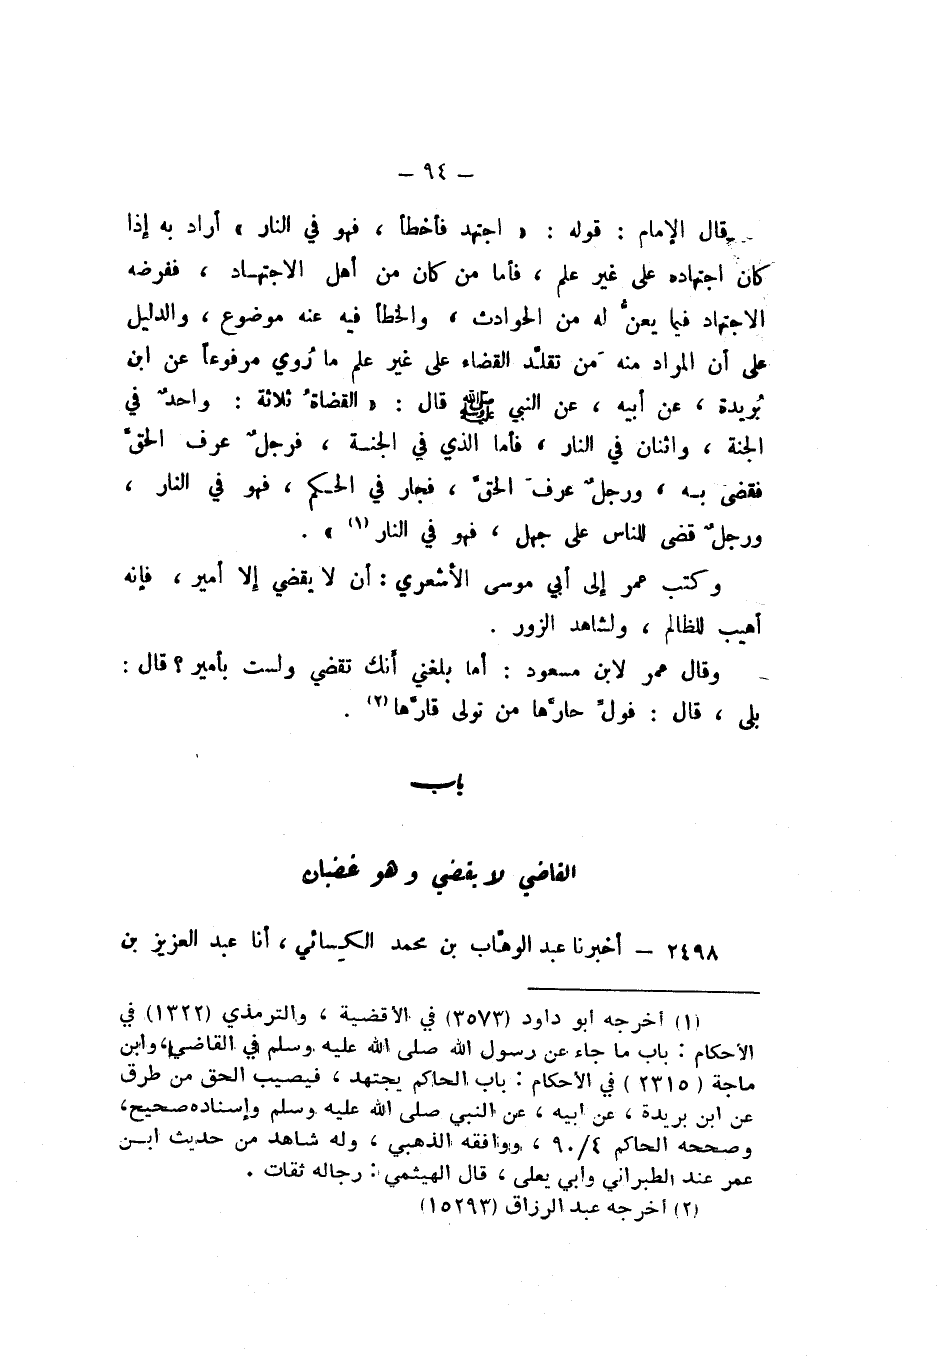 – ٩٤ –
قال الإمام : قوله : « اجتهد فأخطأ ، فهو في النار » أراد به إذا
كان اجتهاده على غير علم ، فأما من كان من أهل الاجتهـاد ، ففرضه
الاجتهاد فيما يعنُّ له من الحوادث ، والخطأ فيه عنه موضوع ، والدليل
على أن المراد منه مَن تقلَّد القضاء على غير علم ما رُوي مرفوعاً عن ابن
بُريدة ، عن أبيه ، عن النبي ﷺ قال : « القضاةُ ثلاثة : واحدٌ في
الجنة ، واثنان في النار ، فأما الذي في الجنـة ، فرجلٌ عرف الحقَّ
فقضى بـه ، ورجلٌ عرفَ الحقَّ ، فجار في الحـكم ، فهو في النار ،
ورجلٌ قضى للناس على جهل ، فهو في النار (١) » .
وكتب عمر إلى أبي موسى الأشعري : أن لا يقضي إلا أمير ، فإنه
أهيب للظالم ، ولشاهد الزور .
وقال عمر لابن مسعود : أما بلغني أنك تقضي ولست بأمير ؟ قال :
بلى ، قال : فولِّ حارَّها من تولى قارَّها (٢) .
باب
القاضي لا يقضي وهو غضبان
٢٤٩٨ – أخبرنا عبد الوهَّاب بن محمد الكِسائي ، أنا عبد العزيز بن
(١) أخرجه أبو داود (٣٥٧٣) في الأقضية ، والترمذي (١٣٢٢) في
الأحكام : باب ما جاء عن رسول الله صلى الله عليه وسلم في القاضي ، وابن
ماجة (٢٣١٥) في الأحكام : باب الحاكم يجتهد ، فيصيب الحق من طرق
عن ابن بريدة ، عن أبيه ، عن النبي صلى الله عليه وسلم وإسناده صحيح ،
وصححه الحاكم ٩٠/٤ ، ووافقه الذهبي ، وله شاهد من حديث ابـن
عمر عند الطبراني وأبي يعلى ، قال الهيثمي : رجاله ثقات .
(٢) أخرجه عبد الرزاق (١٥٢٩٣)